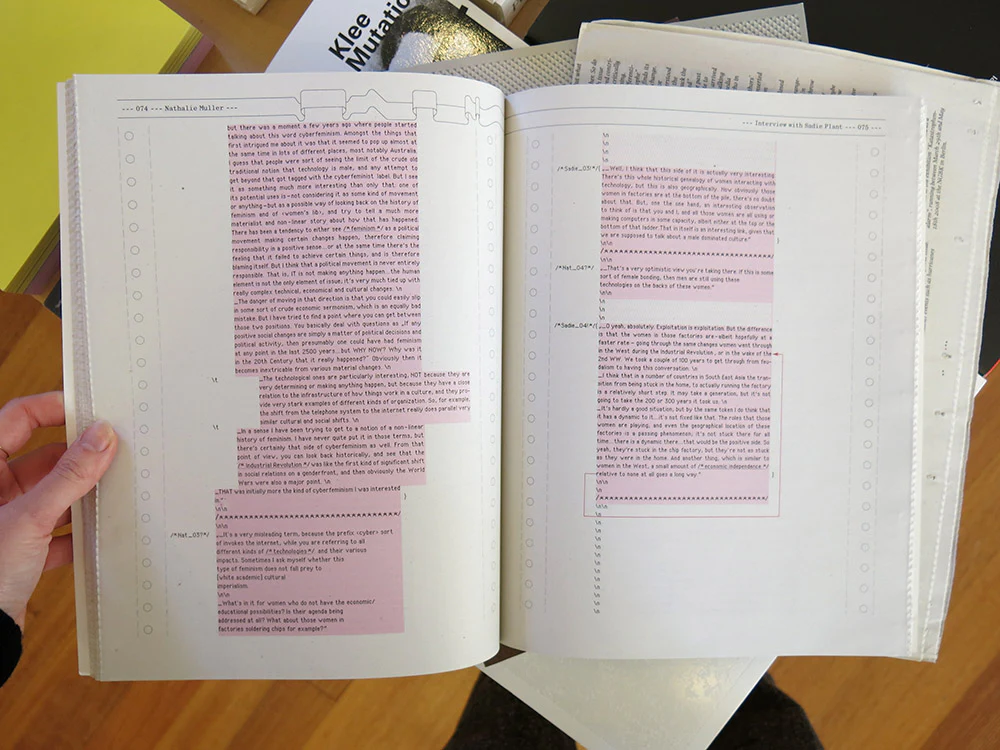 Klee
Mutatio
--- 074 --- Nathalie Muller ---
but there was a moment a few years ago where people started
talking about this word cyberfeminism. Amongst the things that
first intrigued me about it was that it seemed to pop up almost at
the same time in lots of different places, most notably Australia.
I guess that people were sort of seeing the limit of the crude old
traditional notion that technology is male, and any attempt to
get beyond that got tagged with the cyberfeminist label. But I see
it as something much more interesting than only that; one of
its potential uses is-not considering it as some kind of movement
or anything-but as a possible way of looking back on the history of
feminism and of <women's lib>, and try to tell a much more
materialist and non-linear story about how that has happened.
There has been a tendency to either see /*feminism */ as a political
movement making certain changes happen, therefore claiming
responsibility in a positive sense...or at the same time there's the
feeling that it failed to achieve certain things, and is therefore
blaming itself. But I think that a political movement is never entirely
responsible. That is, IT is not making anything happen...the human
element is not the only element of issue; it's very much tied up with
really complex technical, economical and cultural changes. \n
_The danger of moving in that direction is that you could easily slip
in some sort of crude economic sermonism, which is an equally bad
mistake. But I have tried to find a point where you can get between
those two positions. You basically deal with questions as _If any
positive social changes are simply a matter of political decisions and
political activity, then presumably one could have had feminism
at any point in the last 2500 years...but WHY NOW? Why was it
in the 20th Century that it really happened?" Obviously then it
becomes inextricable from various material changes. \n
\t _The technological ones are particularly interesting, NOT because they are
very determining or making anything happen, but because they have a close
relation to the infrastructure of how things work in a culture, and they pro-
vide very stark examples of different kinds of organization. So, for example,
the shift from the telephone system to the internet really does parallel very
similar cultural and social shifts. \n
\t _In a sense I have been trying to get to a notion of a non-linear
history of feminism. I have never quite put it in those terms, but
there's certainly that side of cyberfeminism as well. From that
point of view, you can look back historically, and see that the
/* Industrial Revolution */ was like the first kind of significant shift
in social relations on a genderfront, and then obviously the World
Wars were also a major point. \n
_THAT was initially more the kind of cyberfeminism I was interested
in." }
\n\n
\n\n
/*Nat_03?*/ __It's a very misleading term, because the prefix <cyber> sort
of invokes the internet, while you are referring to all
different kinds of /* technologies */ and their various
impacts. Sometimes I ask myself whether this
type of feminism does not fall prey to
[white academic] cultural
imperialism.
\n\n
_What's in it for women who do not have the economic/
educational possibilities? Is their agenda being
addressed at all? What about those women in
factories soldering chips for example?"
--- Interview with Sadie Plant --- 075 ---
\n
\n
\n
/*Sadie_03!*/{ __Well, I think that this side of it is actually very interesting.
There's this whole historical genealogy of women interacting with
technology, but this is also geographically. How obviously those
women in factories are at the bottom of the pile, there's no doubt
about that. But, one the one hand, an interesting observation
to think of is that you and I, and all those women are all using or
making computers in some capacity, albeit either at the top or the
bottom of that ladder. That in itself is an interesting ink, given that
we are supposed to talk about a male dominated culture."
\n\n }
\n\n
/*Nat_04?*/ __That's a very optimistic view you're taking there. If this is some
sort of female bonding, then men are still using these
technologies on the backs of these women."
\n
\n
/*Sadie_04!*/{ __O yeah, absolutely. Exploitation is exploitation. But the difference
is that the women in those factories are-albeit hopefully at a
faster rate- going through the same changes women went through
in the West during the Industrial Revolution, or in the wake of the
2nd WW. We took a couple of 100 years to get through from feu-
dalism to having this conversation. \n
_I think that in a number of countries in South East Asia the tran-
sition from being stuck in the home, to actually running the factory
is a relatively short step. It may take a generation, but it's not
going to take the 200 or 300 years it took us. \n
_It's hardly a good situation, but by the same token I do think that
it has a dynamic to it...it's not fixed like that. The roles that those
women are playing, and even the geographical location of these
factories is a passing phenomenon; it's not stuck there for all
time...there is a dynamic there...that would be the positive side. So
yeah, they're stuck in the chip factory, but they're not an stuck
as they were in the home. And another thing, which is similar to
women in the West, a small amount of /* economic independence */
relative to none at all goes a long way."
\n\n }
\n\n
\n
\n
\n
\n
\n
\n
\n
\n